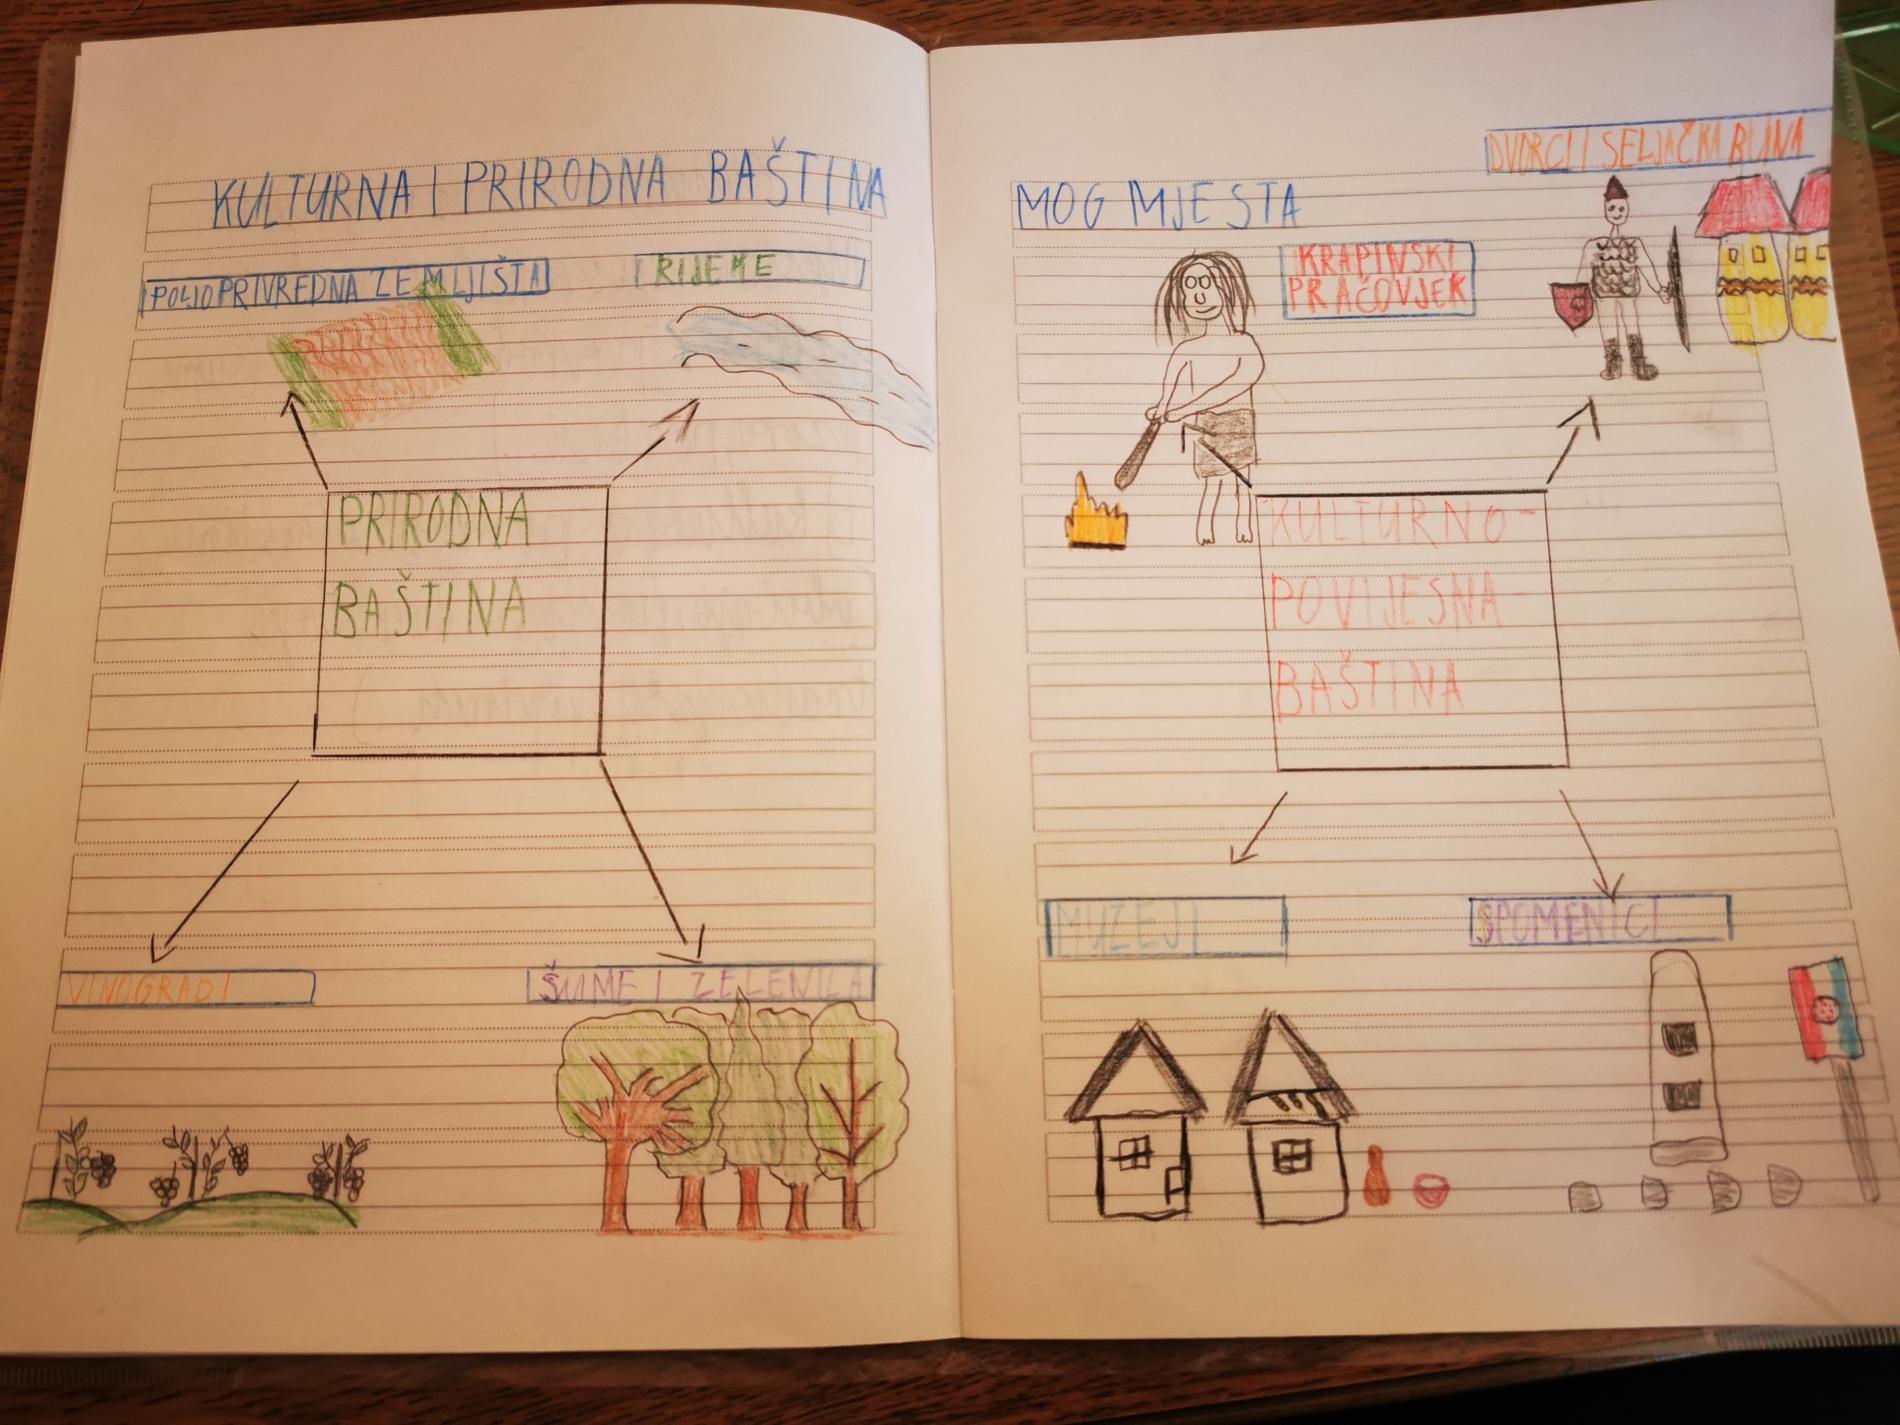 KULTURNA I PRIRODNA BAŠTINA
POLJOPRIVREDNA ZEMLJIŠTA
RIJEKE
PRIRODNA
BAŠTINA
VINOGRADI
ŠUME I ZELENILA
MOG MJESTA
DVORCI I SELJAČKA BUNA
KRAPINSKI
PRAČOVJEK
KULTURNO-
POVIJESNA-
BAŠTINA
MUZEJI
SPOMENICI